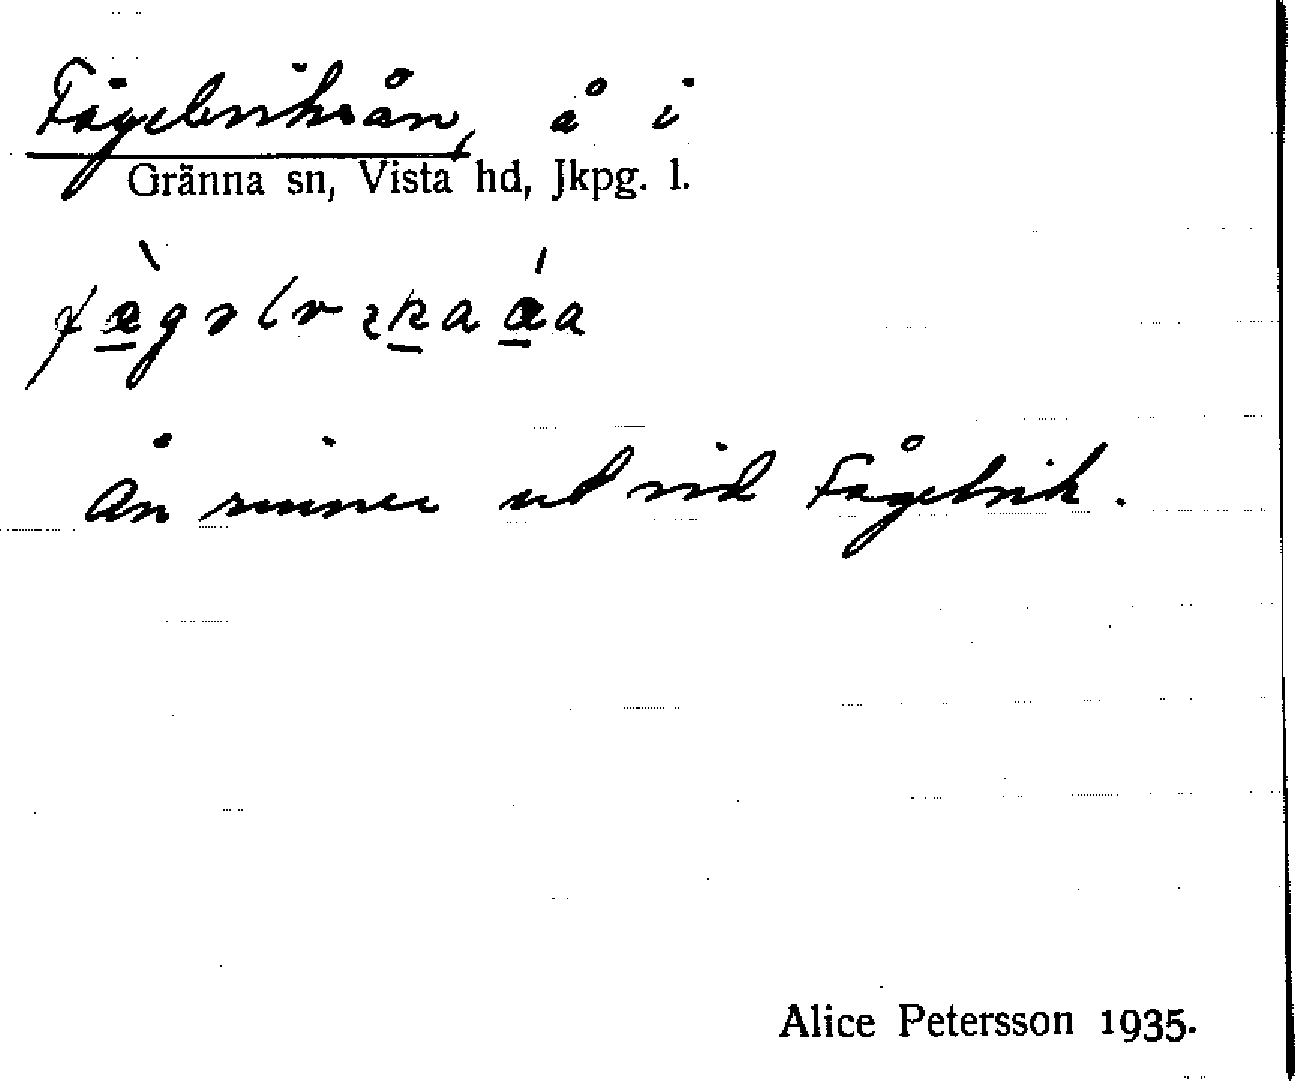 Fågelviksån, å i
Gränna sn, Vista hd, Jkpg. l.
Ån rinner ut vid Fågelvik.
Alice Petersson 1935.